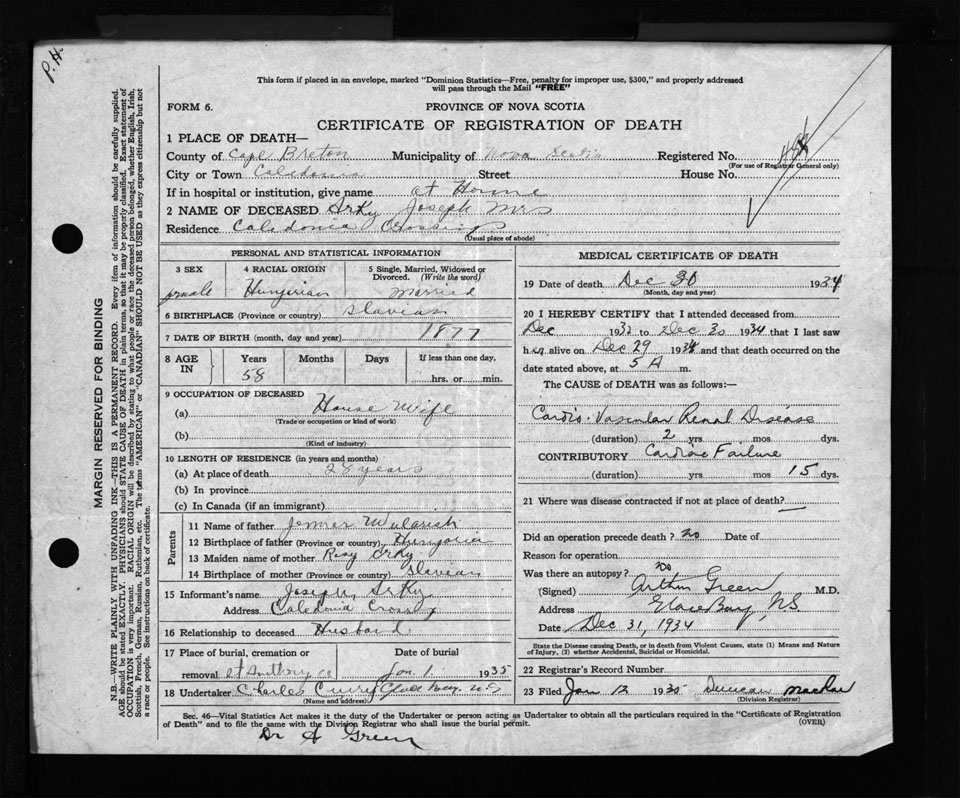 P. H.
This form if placed in an envelope, marked "Dominion Statistics—Free, penalty for improper use, $300," and properly addressed
will pass through the Mail "FREE"
FORM 6.
PROVINCE OF NOVA SCOTIA
CERTIFICATE OF REGISTRATION OF DEATH
1 PLACE OF DEATH—
County of Cape Breton Municipality of Nova Scotia Registered No.
(For use of Registrar General only)
City or Town Caledonia Street House No.
If in hospital or institution, give name at Home
2 NAME OF DECEASED Arky Joseph Mrs
Residence Caledonia Crossing
(Usual place of abode)
PERSONAL AND STATISTICAL INFORMATION
3 SEX 4 RACIAL ORIGIN 5 Single, Married, Widowed or Divorced. (Write the word)
Hungerian married
6 BIRTHPLACE (Province or country) Slavian
7 DATE OF BIRTH (month, day and year) 1877
8 AGE IN Years Months Days If less than one day,
58 hrs. or min.
9 OCCUPATION OF DECEASED
(a) House Wife
(Trade or occupation or kind of work)
(b)
(Kind of industry)
10 LENGTH OF RESIDENCE (in years and months)
(a) At place of death 28 years
(b) In province
(c) In Canada (if an immigrant)
Parents
11 Name of father James
12 Birthplace of father (Province or country) Hungaria
13 Maiden name of mother Rosy Arky
14 Birthplace of mother (Province or country) Slavian
15 Informant's name Joseph Arky
Address Caledonia Crossing
16 Relationship to deceased Husband
17 Place of burial, cremation or removal Date of burial
St Anthony Ce Jan. 1 1935
18 Undertaker Charles Curry Glace Bay. N.S
(Name and address)
MEDICAL CERTIFICATE OF DEATH
19 Date of death Dec 30 1934
(Month, day and year)
20 I HEREBY CERTIFY that I attended deceased from
Dec 1932 to Dec 30 1934 that I last saw
her alive on Dec 29 1934 and that death occurred on the
date stated above, at 5 A m.
The CAUSE of DEATH was as follows:—
Cardio-Vascular Renal Disease
(duration) 2 yrs mos dys.
CONTRIBUTORY Cardiac Failure
(duration) yrs mos 15 dys.
21 Where was disease contracted if not at place of death?
Did an operation precede death? no Date of
Reason for operation
Was there an autopsy? no
(Signed) Arthur Green M.D.
Address Glace Bay, N.S.
Date Dec 31, 1934
State the Disease causing Death, or in death from Violent Causes, state (1) Means and Nature
of Injury, (2) whether Accidental, Suicidal or Homicidal.
22 Registrar's Record Number
23 Filed Jan 12 1935 Duncan MacRae
(Division Registrar)
Sec. 46—Vital Statistics Act makes it the duty of the Undertaker or person acting as Undertaker to obtain all the particulars required in the "Certificate of Registration
of Death" and to file the same with the Division Registrar who shall issue the burial permit. (OVER)
Dr A Green
MARGIN RESERVED FOR BINDING
N.B.—WRITE PLAINLY WITH UNFADING INK—THIS IS A PERMANENT RECORD. Every item of information should be carefully supplied.
AGE should be stated EXACTLY. PHYSICIANS should STATE CAUSE OF DEATH in plain terms, so that it may be properly classified. Exact statement of
OCCUPATION is very important. RACIAL ORIGIN will be described by stating to what people or race the deceased person belonged, whether English, Irish,
Scottish, French, German, Russian, Ruthenian, etc. The terms "AMERICAN" or "CANADIAN" SHOULD NOT BE USED as they express citizenship but not
a race or people. See instructions on back of certificate.